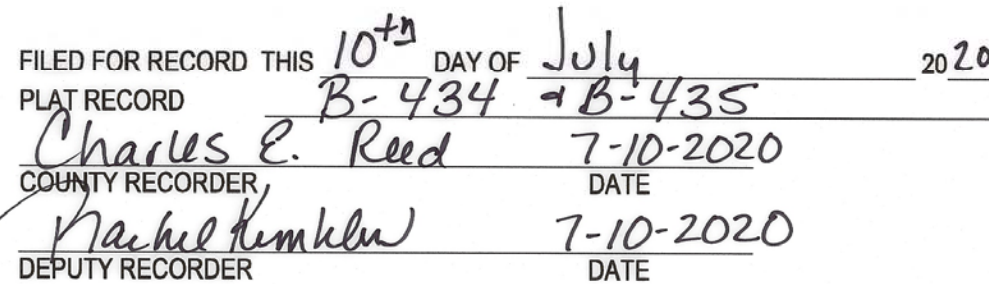 FILED FOR RECORD THIS 10th DAY OF July 2020
PLAT RECORD B-434 & B-435
Charles E. Reed 7-10-2020
COUNTY RECORDER DATE
Rachel 7-10-2020
DEPUTY RECORDER DATE